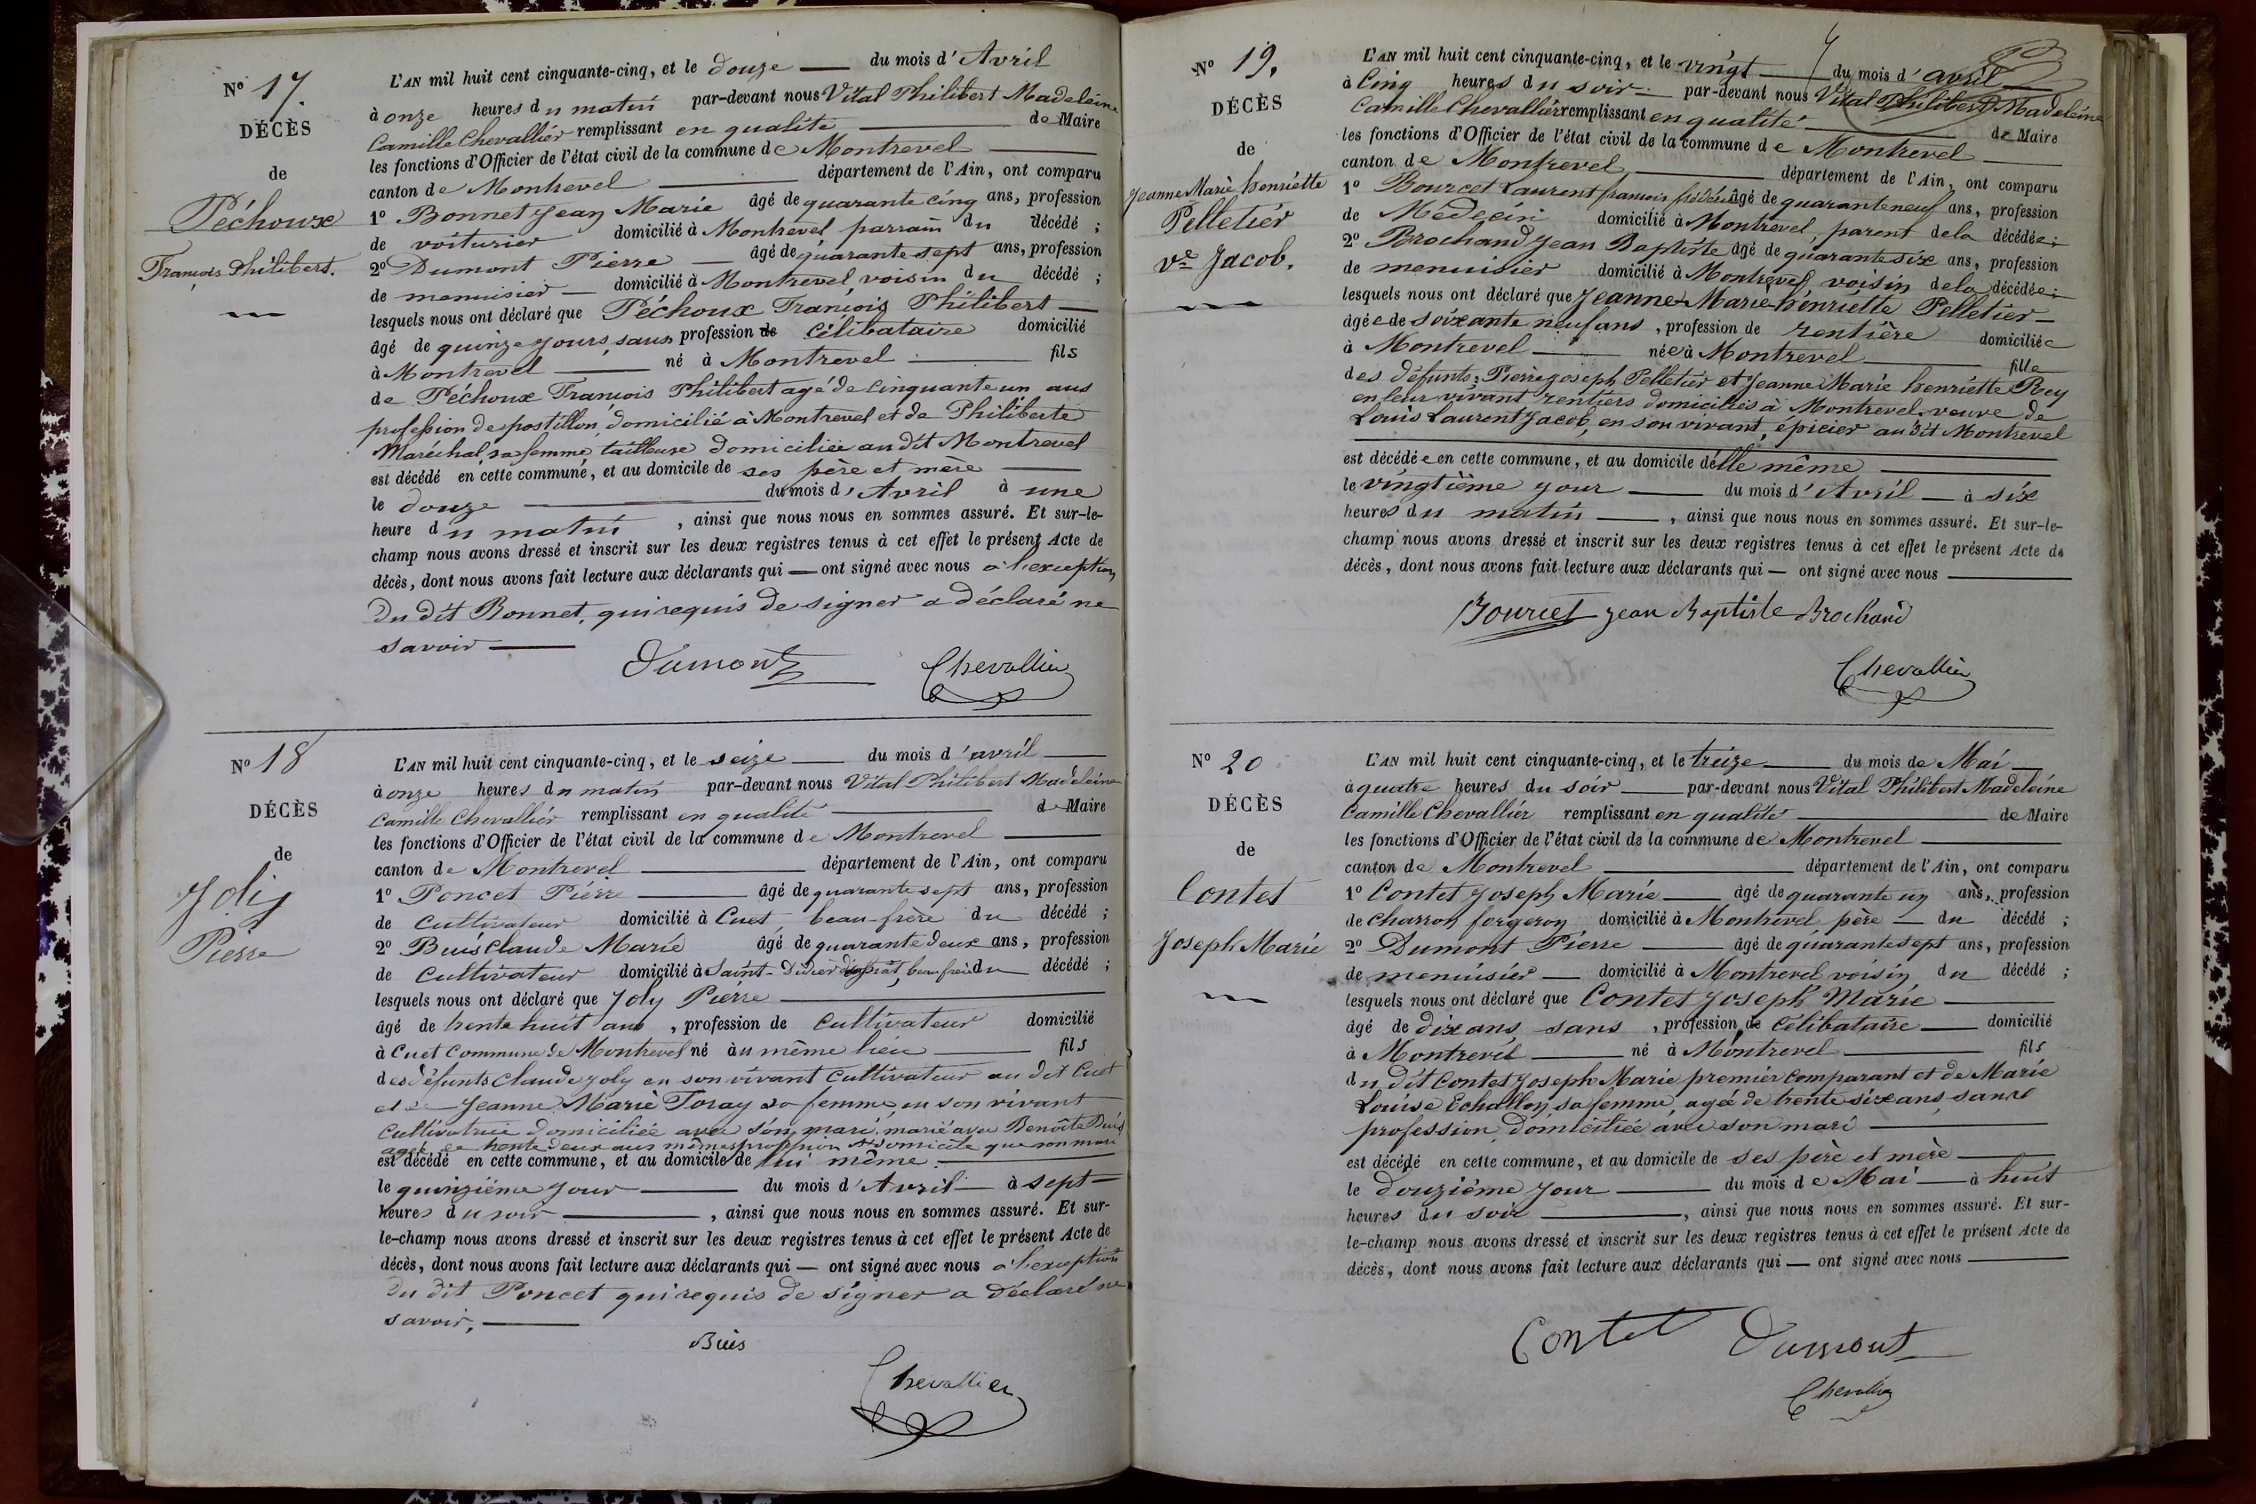 N° 17.
DÉCÈS
de
Péchoux
François Philibert.
L'AN mil huit cent cinquante-cinq, et le douze du mois d'Avril
à onze heures du matin par-devant nous Vital Philibert Madeleine
Camille Chevallier remplissant en qualité de Maire
les fonctions d'Officier de l'état civil de la commune de Montrevel
canton de Montrevel département de l'Ain, ont comparu
1° Bonnet Jean Marie âgé de quarante cinq ans, profession
de voiturier domicilié à Montrevel parrain du décédé ;
2° Dumont Pierre âgé de quarante sept ans, profession
de menuisier domicilié à Montrevel, voisin du décédé ;
lesquels nous ont déclaré que Péchoux François Philibert
âgé de quinze jours, sans profession de célibataire domicilié
à Montrevel né à Montrevel fils
de Péchoux François Philibert agé de cinquante un ans
profession de postillon, domicilié à Montrevel et de Philiberte
Maréchal, sa femme, tailleuse domiciliée au dit Montrevel
est décédé en cette commune, et au domicile de ses père et mère
le douze du mois d'Avril à une
heure du matin, ainsi que nous nous en sommes assuré. Et sur-le-
champ nous avons dressé et inscrit sur les deux registres tenus à cet effet le présent Acte de
décès, dont nous avons fait lecture aux déclarants qui — ont signé avec nous à l'exception
du dit Bonnet, qui requis de signer a déclaré ne
savoir
Dumont Chevallier
N° 18
DÉCÈS
de
Joly
Pierre
L'AN mil huit cent cinquante-cinq, et le seize du mois d'avril
à onze heures du matin par-devant nous Vital Philibert Madeleine
Camille Chevallier remplissant en qualité de Maire
les fonctions d'Officier de l'état civil de la commune de Montrevel
canton de Montrevel département de l'Ain, ont comparu
1° Poncet Pierre âgé de quarante sept ans, profession
de cultivateur domicilié à Cuet, beau-frère du décédé ;
2° Buis Claude Marie âgé de quarante deux ans, profession
de cultivateur domicilié à Saint-Didier d'aussiat, beau frère du décédé ;
lesquels nous ont déclaré que Joly Pierre
âgé de trente huit ans, profession de cultivateur domicilié
à Cuet commune de Montrevel né au même lieu fils
des défunts Claude Joly en son vivant cultivateur au dit Cuet
et de Jeanne Marie Toray sa femme, en son vivant
cultivatrice domiciliée avec son mari, marié avec Benoîte Buis
agée de trente deux ans mêmes profession et domicile que son mari
est décédé en cette commune, et au domicile de lui même
le quinzième jour du mois d'Avril à sept
heures du soir, ainsi que nous nous en sommes assuré. Et sur-
le-champ nous avons dressé et inscrit sur les deux registres tenus à cet effet le présent Acte de
décès, dont nous avons fait lecture aux déclarants qui — ont signé avec nous à l'exception
du dit Poncet qui requis de signer a déclaré ne
savoir.
Buis
Chevallier
N° 19.
DÉCÈS
de
Jeanne Marie henriette
Pelletier
Ve Jacob.
L'AN mil huit cent cinquante-cinq, et le vingt du mois d'avril
à Cinq heures du soir par-devant nous Vital Philibert Madeleine
Camille Chevallier remplissant en qualité de Maire
les fonctions d'Officier de l'état civil de la commune de Montrevel
canton de Montrevel département de l'Ain, ont comparu
1° Bourcet Laurent françois frédéric âgé de quarante neuf ans, profession
de Médecin domicilié à Montrevel, parent de la décédée ;
2° Brochand Jean Baptiste âgé de quarante six ans, profession
de menuisier domicilié à Montrevel, voisin de la décédée ;
lesquels nous ont déclaré que Jeanne-Marie-henriette Pelletier
âgée de soixante neuf ans, profession de rentière domiciliée
à Montrevel née à Montrevel fille
des défunts : Pierre joseph Pelletier et Jeanne Marie henriette Rey
en leur vivant rentiers domiciliés à Montrevel, veuve de
Louis Laurent Jacob, en son vivant, épicier au dit Montrevel
est décédée en cette commune, et au domicile d'elle même
le vingtième jour du mois d'Avril à six
heures du matin, ainsi que nous nous en sommes assuré. Et sur-le-
champ nous avons dressé et inscrit sur les deux registres tenus à cet effet le présent Acte de
décès, dont nous avons fait lecture aux déclarants qui — ont signé avec nous
Bourcet jean Baptiste Brochand
Chevallier
N° 20
DÉCÈS
de
Contet
Joseph Marie
L'AN mil huit cent cinquante-cinq, et le treize du mois de Mai
à quatre heures du soir par-devant nous Vital Philibert Madeleine
Camille Chevallier remplissant en qualité de Maire
les fonctions d'Officier de l'état civil de la commune de Montrevel
canton de Montrevel département de l'Ain, ont comparu
1° Contet Joseph Marie âgé de quarante un ans, profession
de charron forgeron domicilié à Montrevel père du décédé ;
2° Dumont Pierre âgé de quarante sept ans, profession
de menuisier domicilié à Montrevel voisin du décédé ;
lesquels nous ont déclaré que Contet Joseph Marie
âgé de dix ans sans, profession de célibataire domicilié
à Montrevel né à Montrevel fils
du dit Contet Joseph Marie premier comparant et de Marie
Louise Echallon, sa femme, agée de trente six ans, sans
profession, domiciliée avec son mari
est décédé en cette commune, et au domicile de ses père et mère
le douzième jour du mois de Mai à huit
heures du soir, ainsi que nous nous en sommes assuré. Et sur-
le-champ nous avons dressé et inscrit sur les deux registres tenus à cet effet le présent Acte de
décès, dont nous avons fait lecture aux déclarants qui — ont signé avec nous
Contet Dumont
Chevallier